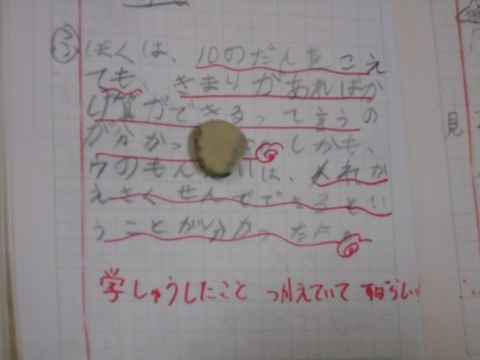 ふ ぼくは、10のだんをこえ
ても、きまりがあればか
け算ができるって言うの
が分かっ しかも、
ウのもん は、入れか
えさくせんでできるとい
うことが分かったよ
学しゅうしたこと つかえていて すばらしい